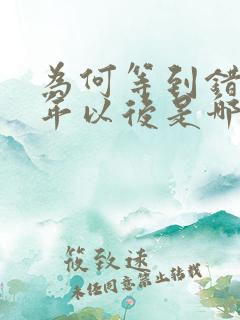 為何等到錯
年以後是那
筱致远
未经同意禁止转载